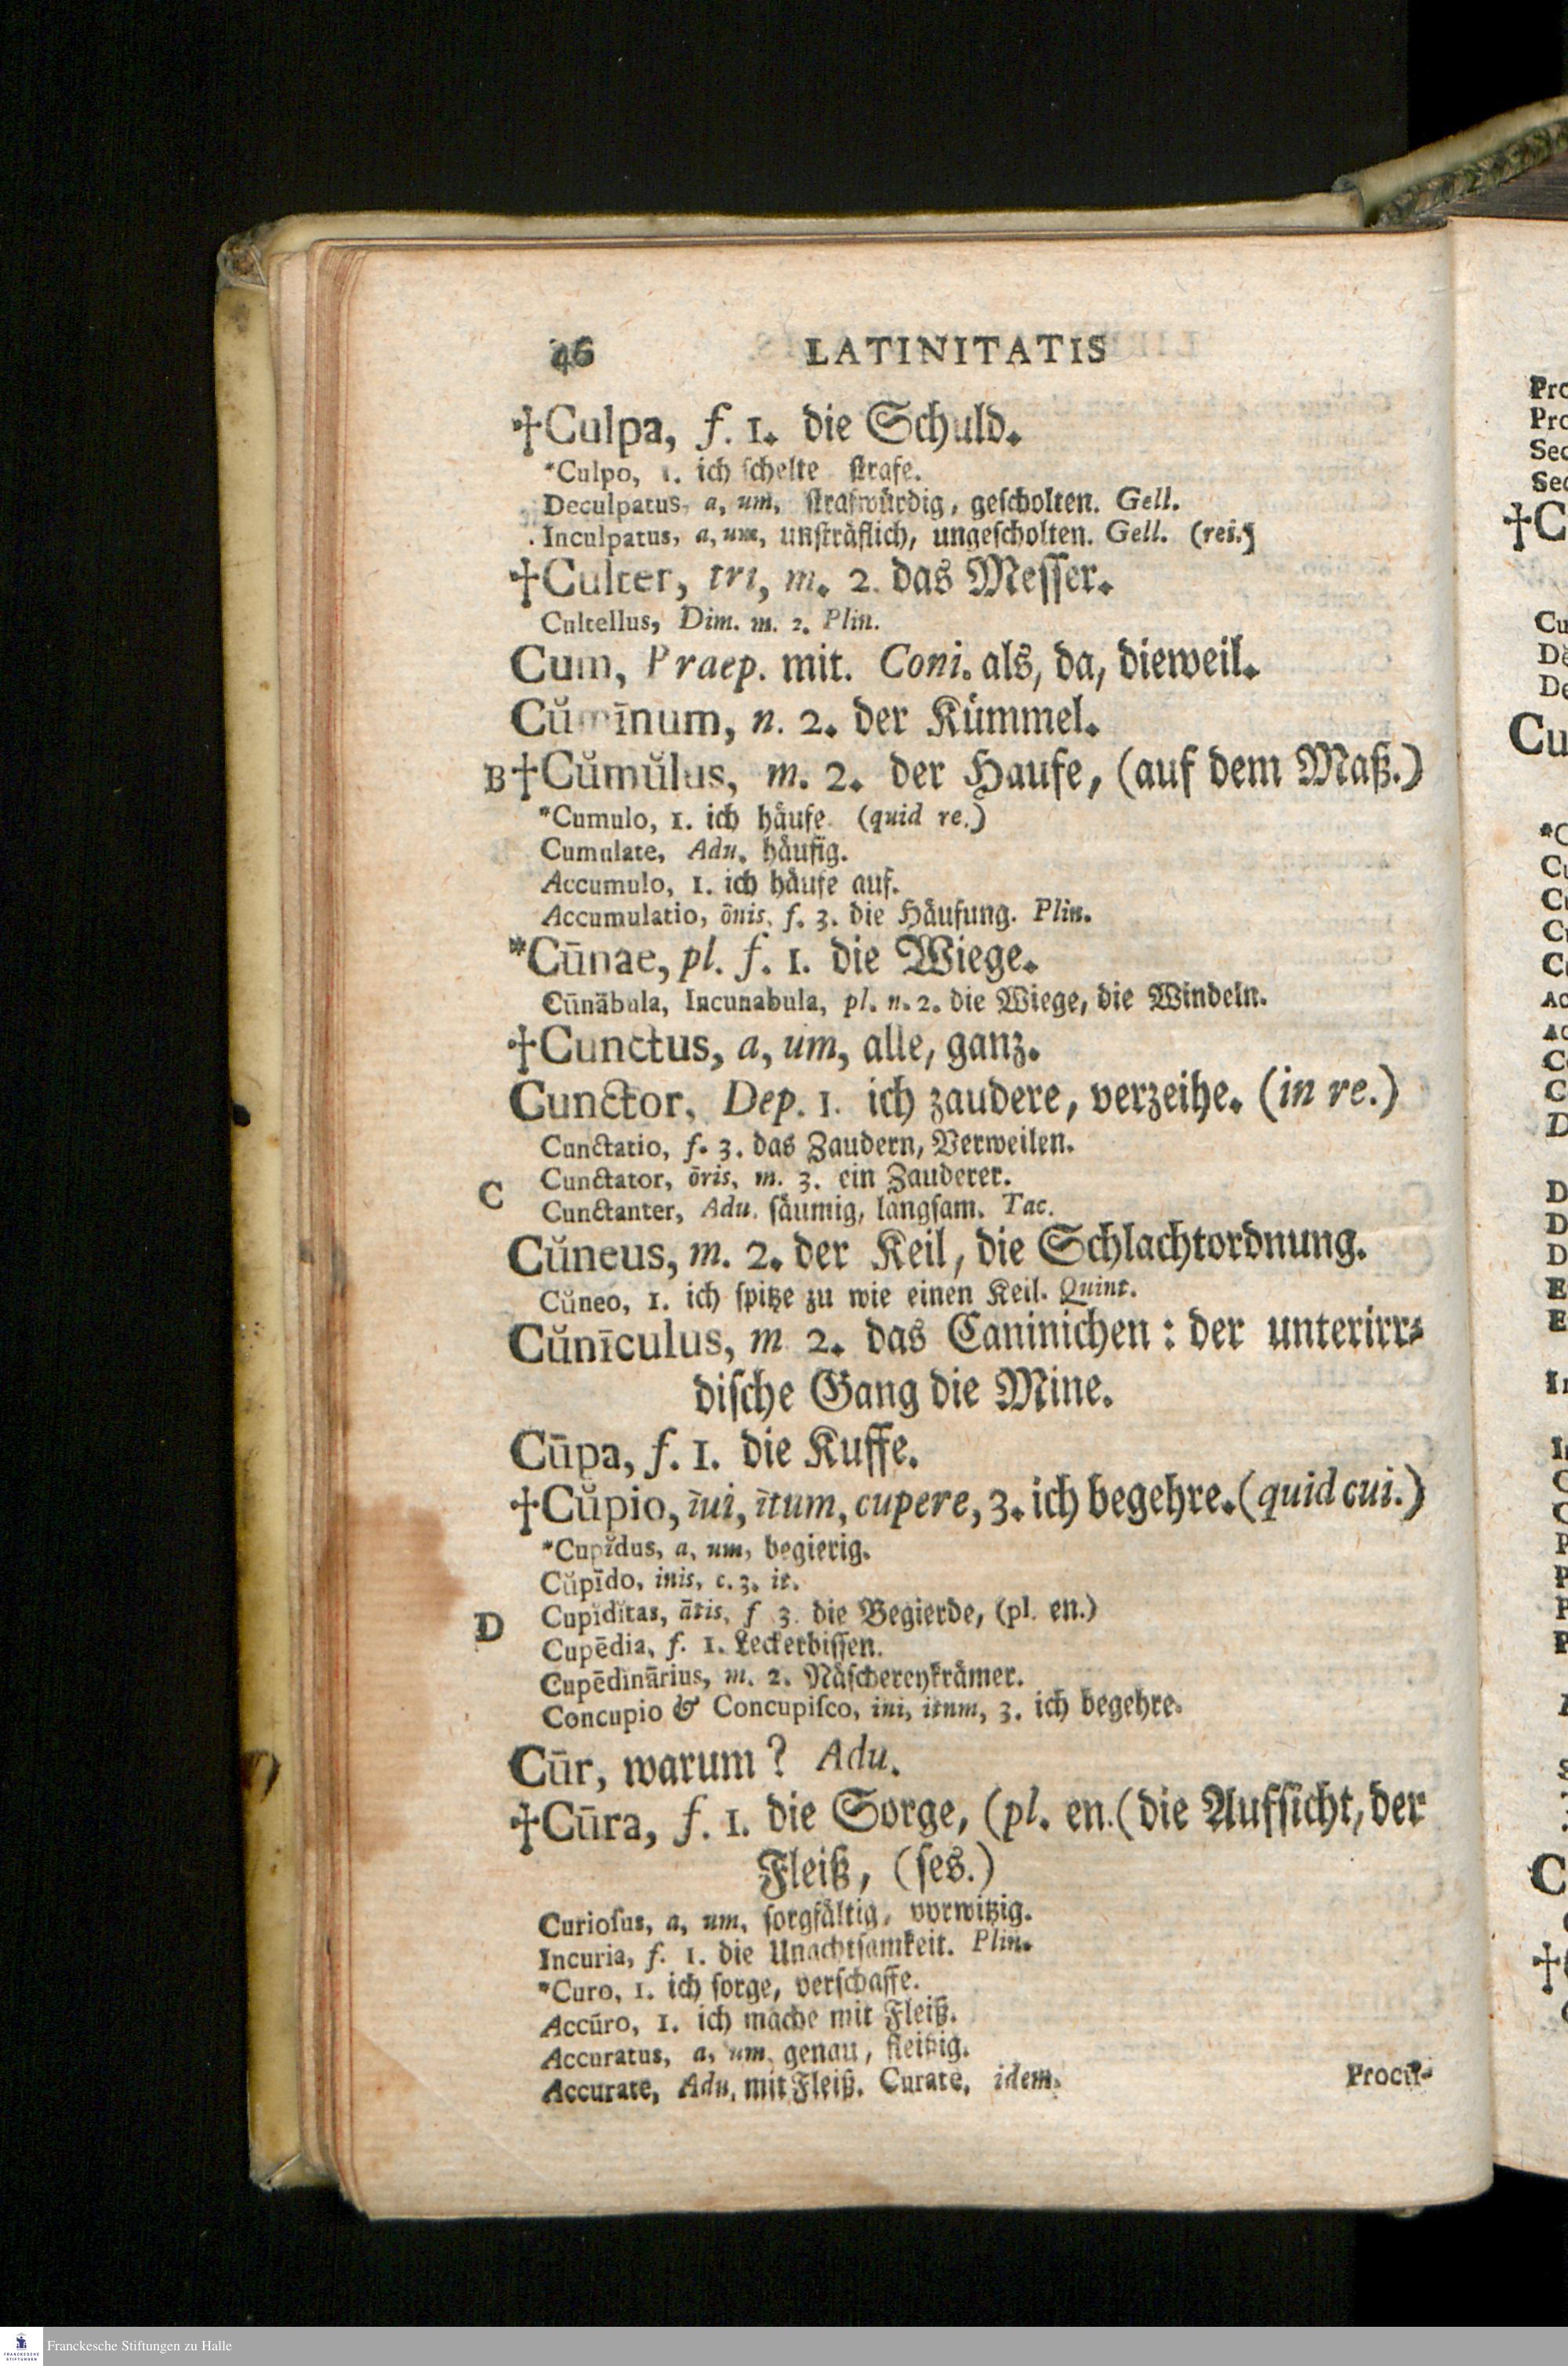 46 LATINITATIS
†Culpa, f. 1. die Schuld.
*Culpo, 1. ich ſchelte ſtrafe.
Deculpatus, a, um, ſtrafwürdig, geſcholten. Gell.
Inculpatus, a, um, unſträflich, ungeſcholten. Gell. (rei.)
†Culter, tri, m. 2. das Meſſer.
Cultellus, Dim. m. 2. Plin.
Cum, Praep. mit. Coni. als, da, dieweil.
Cŭmīnum, n. 2. der Kümmel.
B †Cŭmŭlus, m. 2. der Haufe, (auf dem Maß.)
*Cumulo, 1. ich häufe. (quid re.)
Cumulate, Adu. häufig.
Accumulo, 1. ich häufe auf.
Accumulatio, ōnis, f. 3. die Häufung. Plin.
*Cūnae, pl. f. 1. die Wiege.
Cūnābula, Incunabula, pl. n. 2. die Wiege, die Windeln.
†Cunctus, a, um, alle, ganz.
Cunctor, Dep. 1. ich zaudere, verzeihe. (in re.)
Cunctatio, f. 3. das Zaudern, Verweilen.
Cunctator, ōris, m. 3. ein Zauderer.
C Cunctanter, Adu. ſäumig, langſam. Tac.
Cŭneus, m. 2. der Keil, die Schlachtordnung.
Cŭneo, 1. ich ſpitze zu wie einen Keil. Quint.
Cŭnīculus, m 2. das Caninichen: der unterirr-
diſche Gang die Mine.
Cūpa, f. 1. die Kuffe.
†Cŭpio, īui, ītum, cupere, 3. ich begehre. (quid cui.)
*Cupĭdus, a, um, begierig.
Cŭpīdo, inis, c. 3. it.
D Cupĭdĭtas, ātis, f 3. die Begierde, (pl. en.)
Cupēdia, f. 1. Leckerbiſſen.
Cupēdĭnārius, m. 2. Näſchereykrämer.
Concupio & Concupiſco, iui, itum, 3. ich begehre.
Cūr, warum? Adu.
†Cūra, f. 1. die Sorge, (pl. en.( die Aufſicht, der
Fleiß, (ſes.)
Curioſus, a, um, ſorgfältig, vorwitzig.
Incuria, f. 1. die Unachtſamkeit. Plin.
*Curo, 1. ich ſorge, verſchaffe.
Accūro, 1. ich mache mit Fleiß.
Accuratus, a, um, genau, fleißig.
Accurate, Adu. mit Fleiß. Curate, idem.
Procū-
Pro
Pro
Sec
Sec
†C
Cu
De
Cu
*C
Franckesche Stiftungen zu Halle